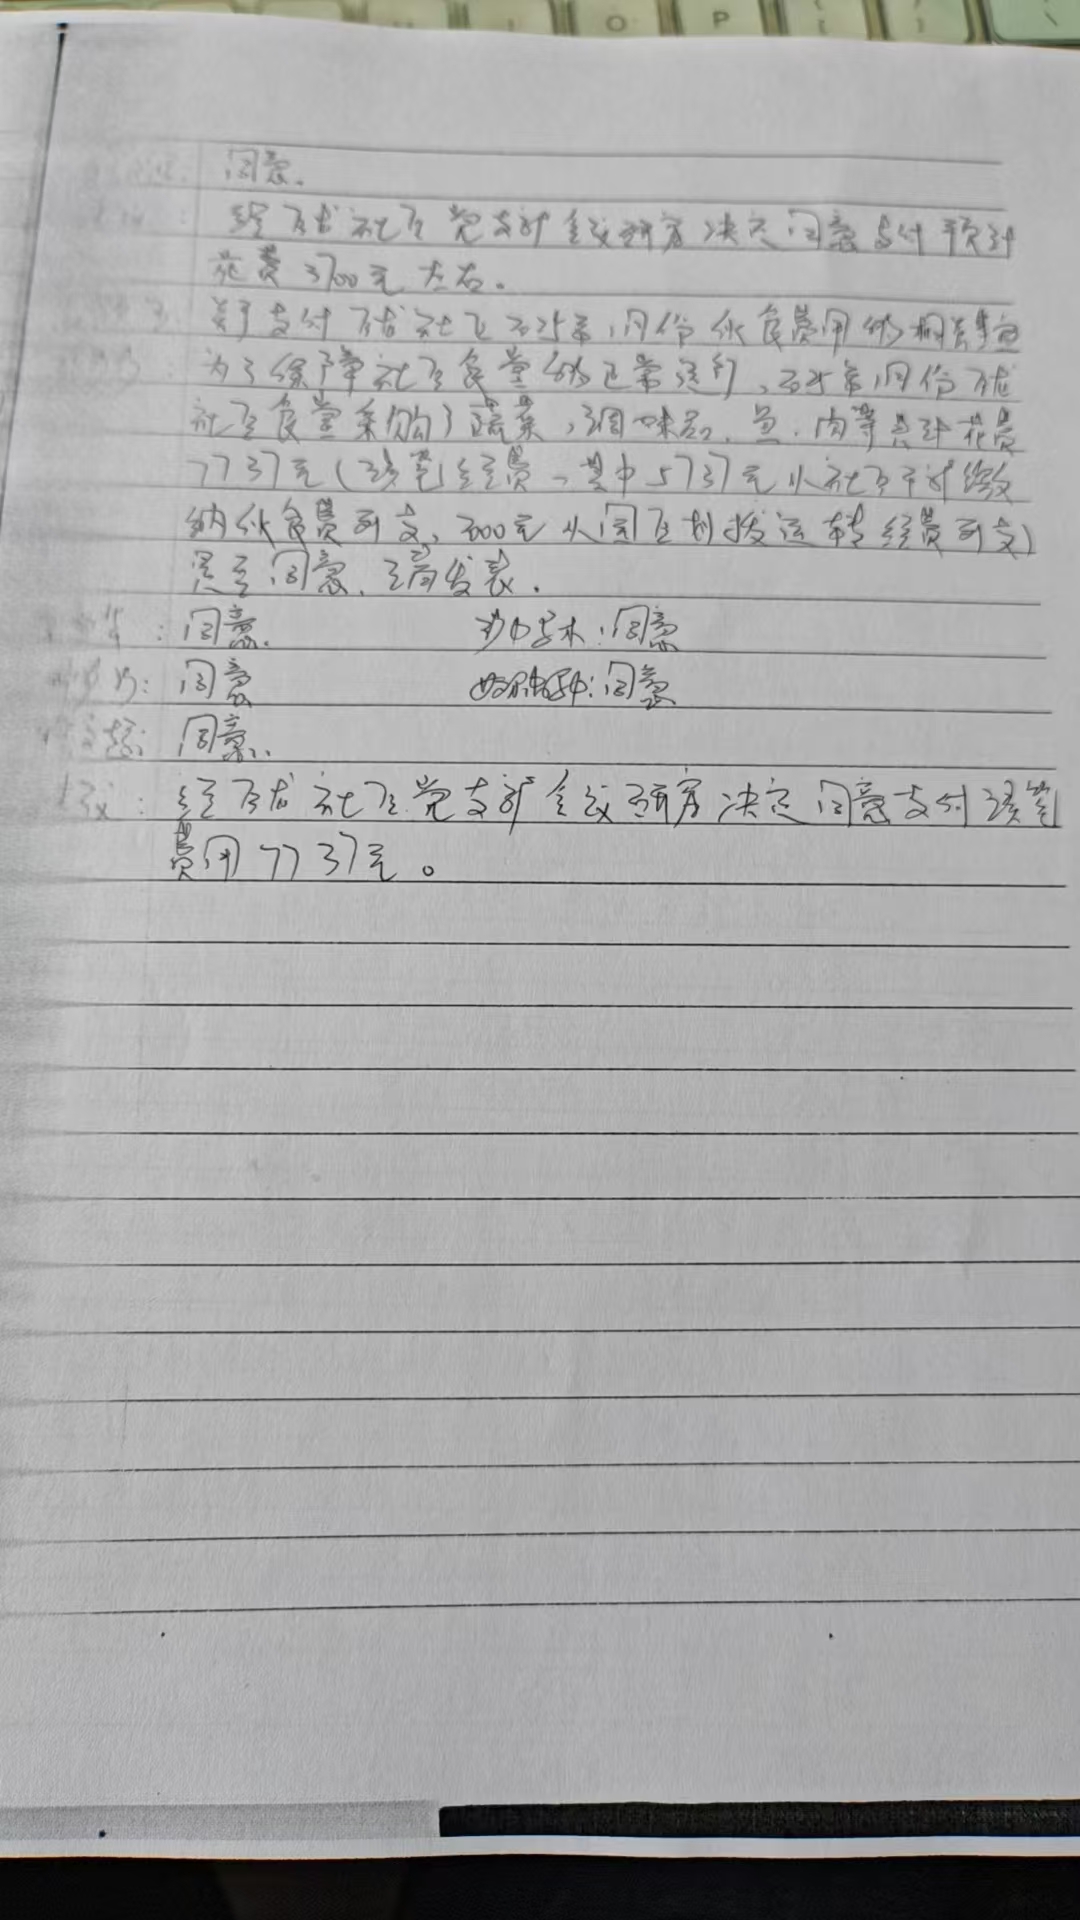 同意。
经 社区党支部会议研究决定同意支付预计
花费3700元左右。
关于支付 社区2025年1月份伙食费用的相关事宜
为了保障社区食堂的正常运行,2025年1月份
社区食堂采购了蔬菜,调味品、鱼、肉等共计花费
7737元(该笔经费,其中5737元从社区干部缴
纳伙食费列支,2000元从园区划拨运转经费列支)
是否同意,请发表。
同意. :同意
同意 :同意
同意.
经 社区党支部会议研究决定同意支付该笔
费用7737元。